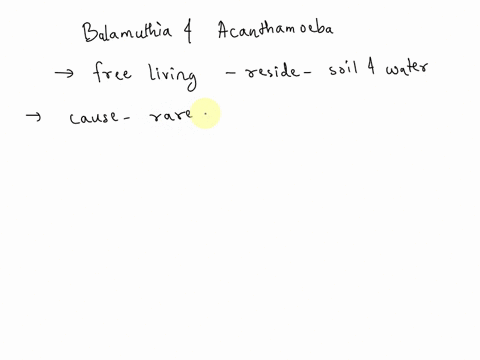 Balamuthia & Acanthamoeba
→ free living - reside - soil & water
→ cause - rare